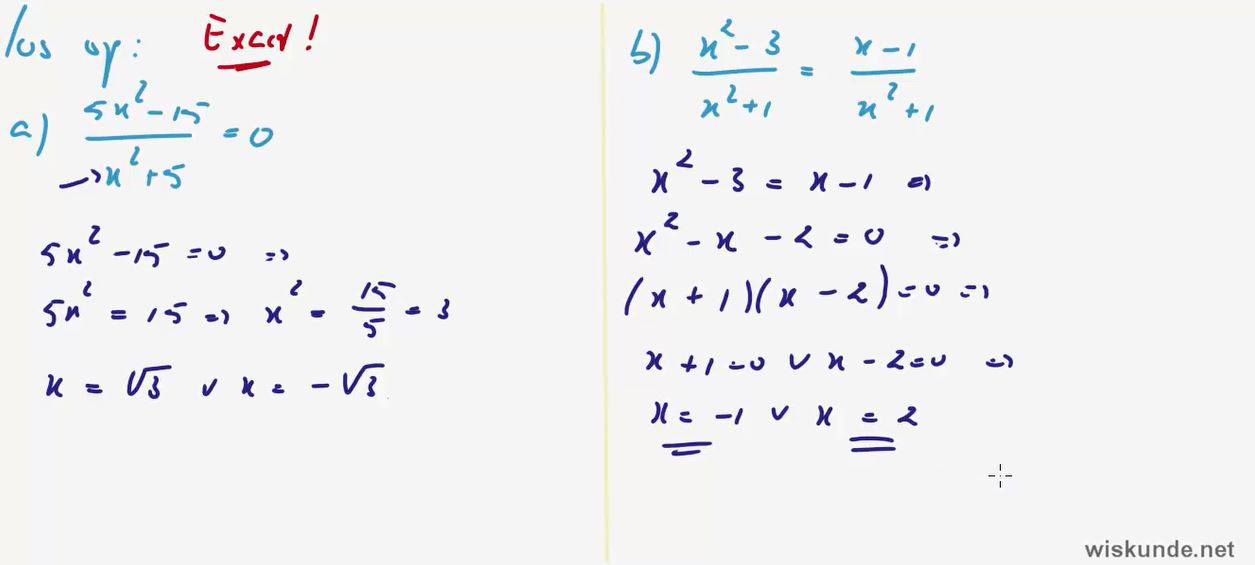 los op: Exact!
a) (5x² - 15)/(x² + 5) = 0
5x² - 15 = 0 ⇒
5x² = 15 ⇒ x² = 15/5 = 3
x = √3 ∨ x = -√3
b) (x² - 3)/(x² + 1) = (x - 1)/(x² + 1)
x² - 3 = x - 1 ⇒
x² - x - 2 = 0 ⇒
(x + 1)(x - 2) = 0 ⇒
x + 1 = 0 ∨ x - 2 = 0 ⇒
x = -1 ∨ x = 2
wiskunde.net